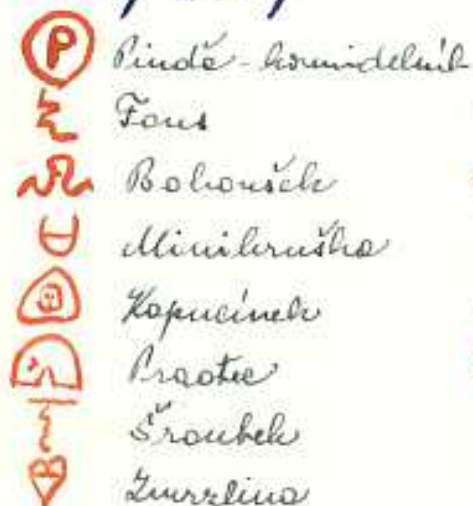 P Pinďa - kormidelník
Fous
Bohoušek
Minihruška
Kapucínek
Praotec
Šroubek
Zmrzlina